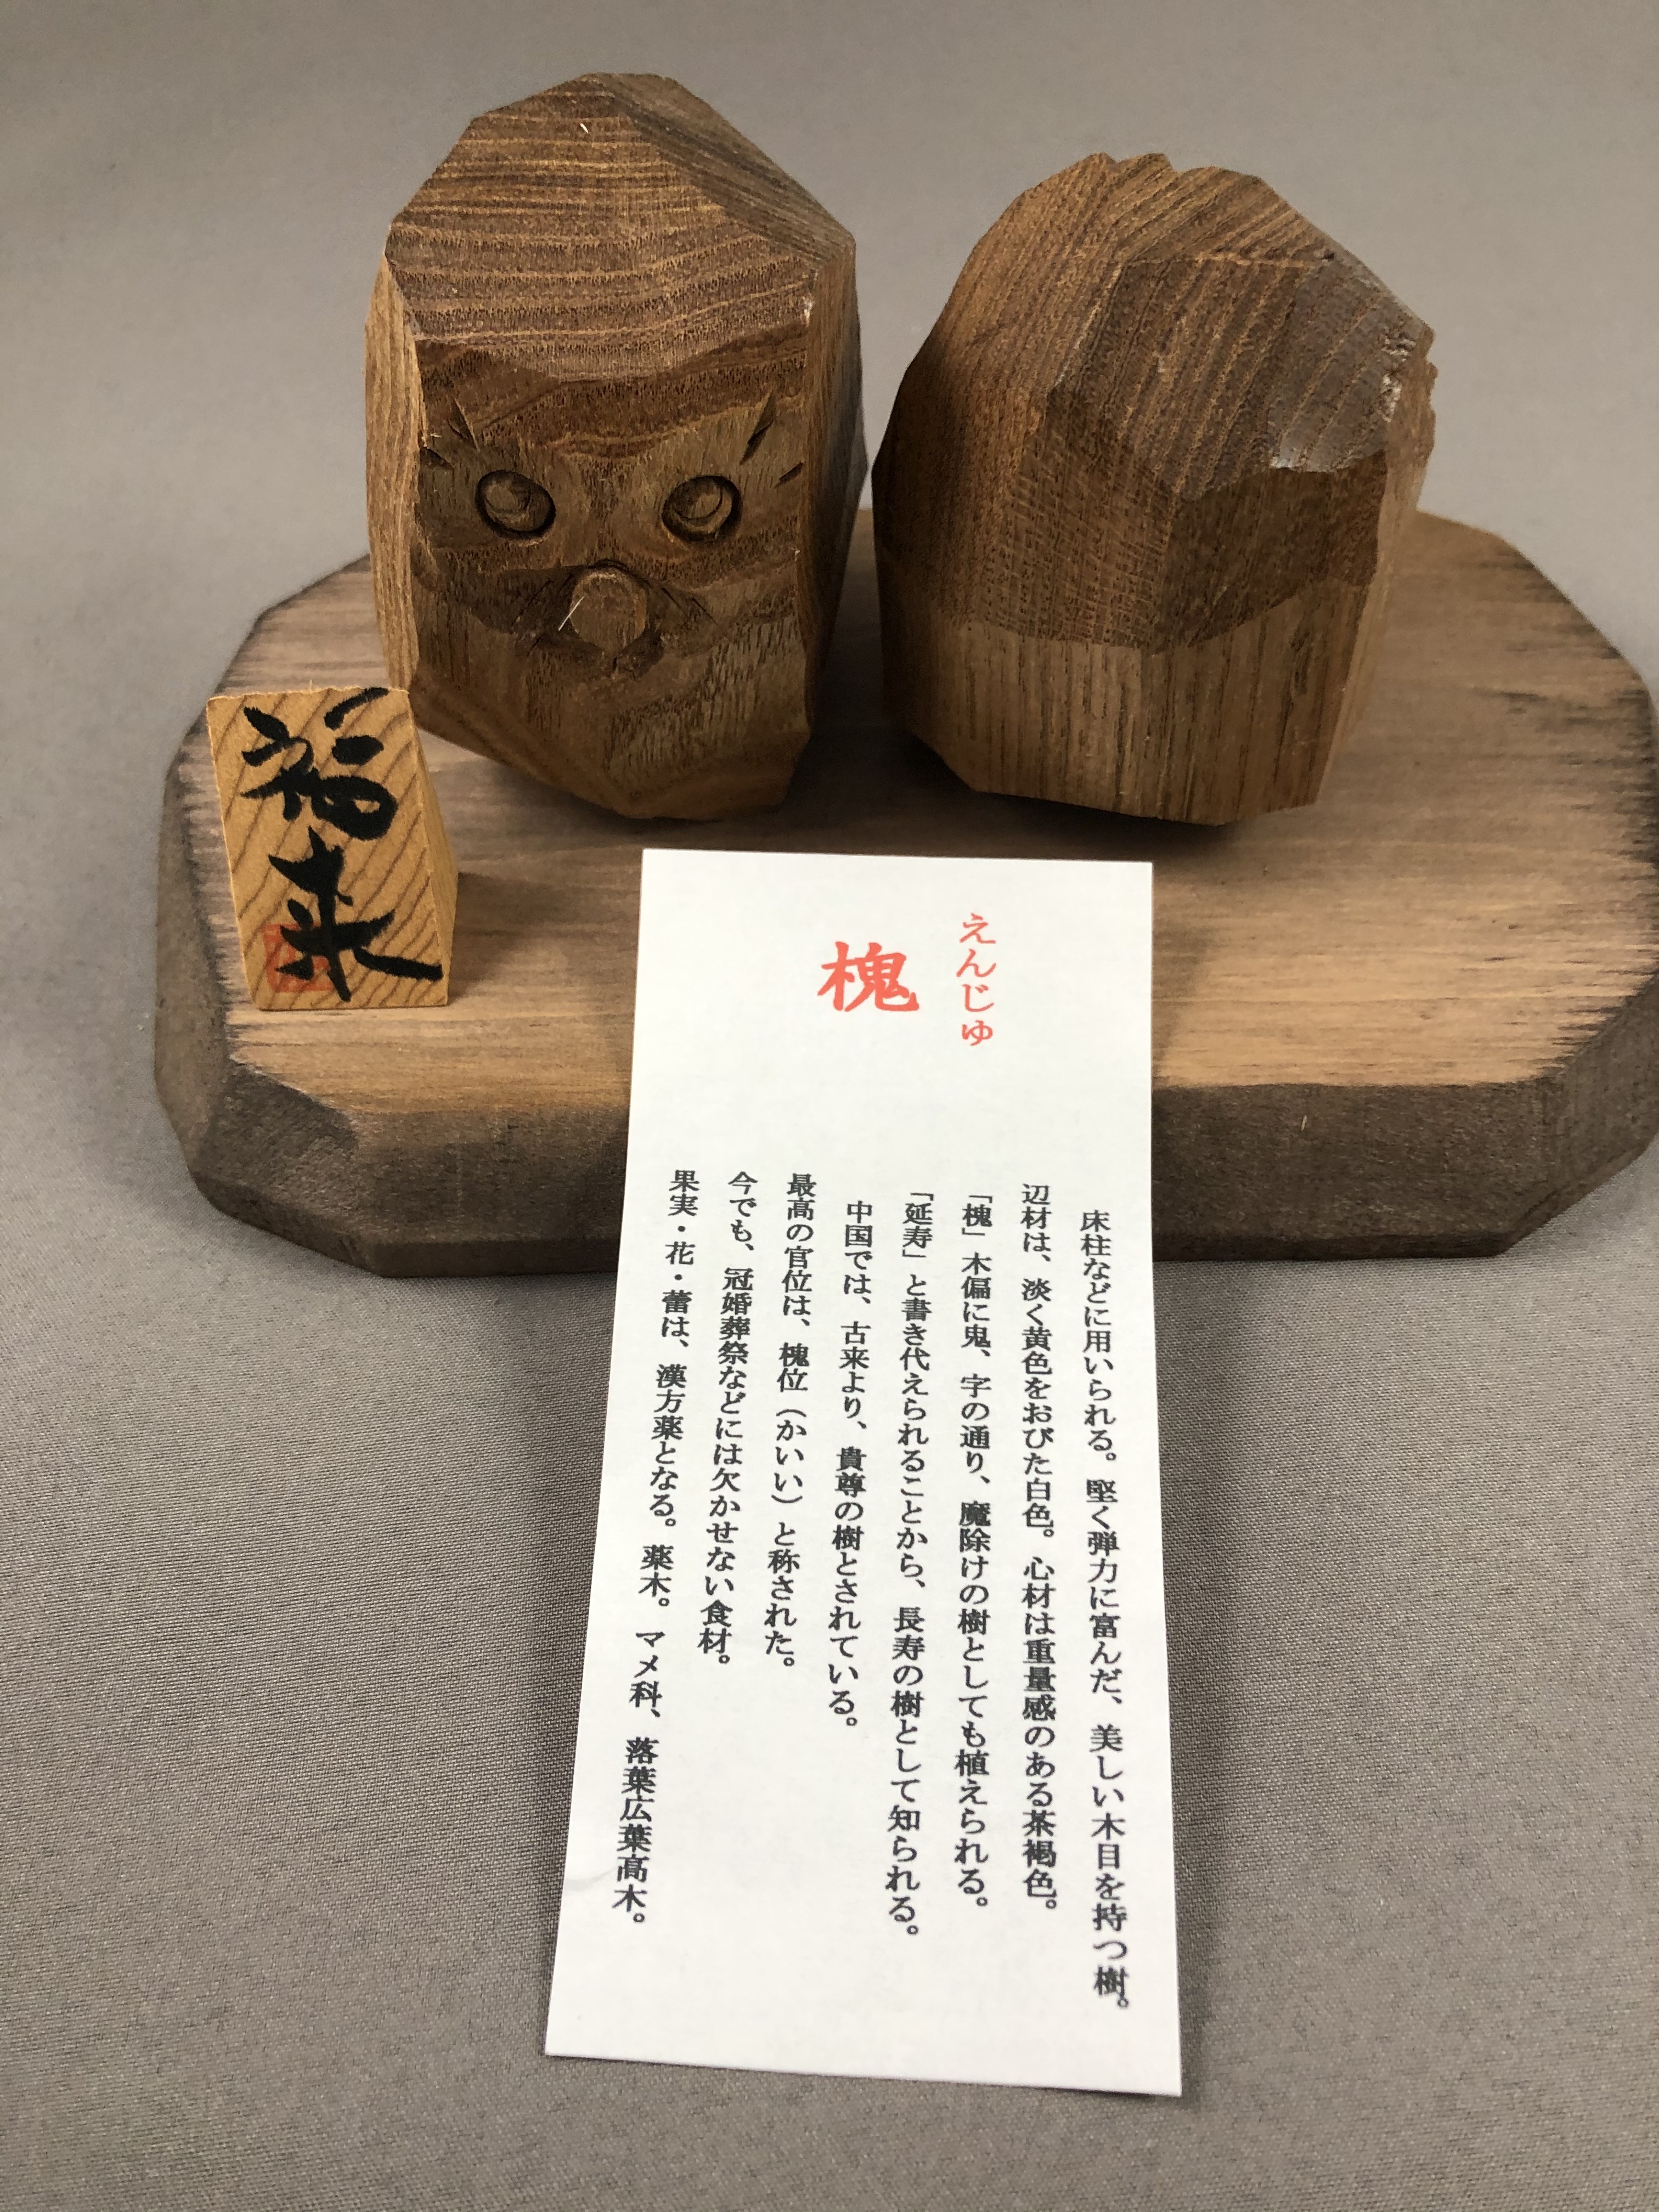 福来
えんじゅ
槐
床柱などに用いられる。堅く弾力に富んだ、美しい木目を持つ樹。
辺材は、淡く黄色をおびた白色。心材は重量感のある茶褐色。
「槐」木偏に鬼、字の通り、魔除けの樹としても植えられる。
「延寿」と書き代えられることから、長寿の樹として知られる。
中国では、古来より、貴尊の樹とされている。
最高の官位は、槐位（かいい）と称された。
今でも、冠婚葬祭などには欠かせない食材。
果実・花・蕾は、漢方薬となる。薬木。マメ科、落葉広葉高木。